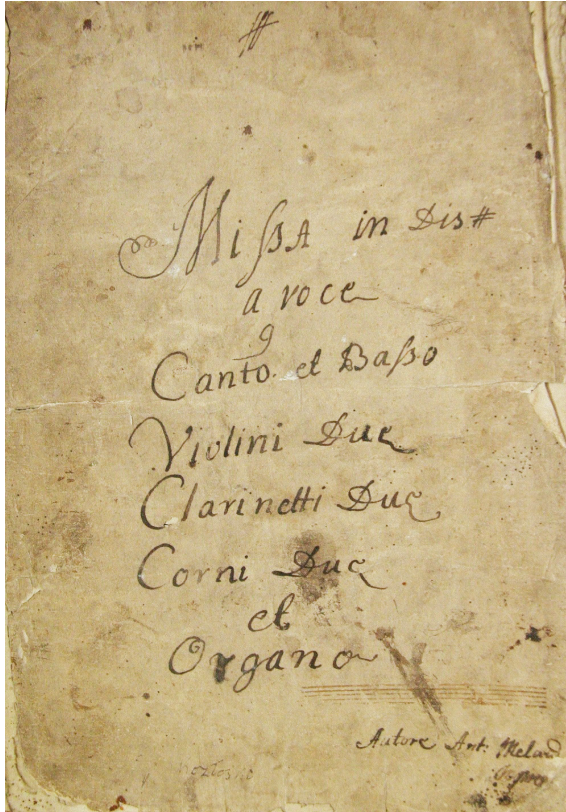 #
Missa in Dis#
a voce
9
Canto et Basso
Violini Due
Clarinetti Due
Corni Due
et
Organo
Autore Ant: